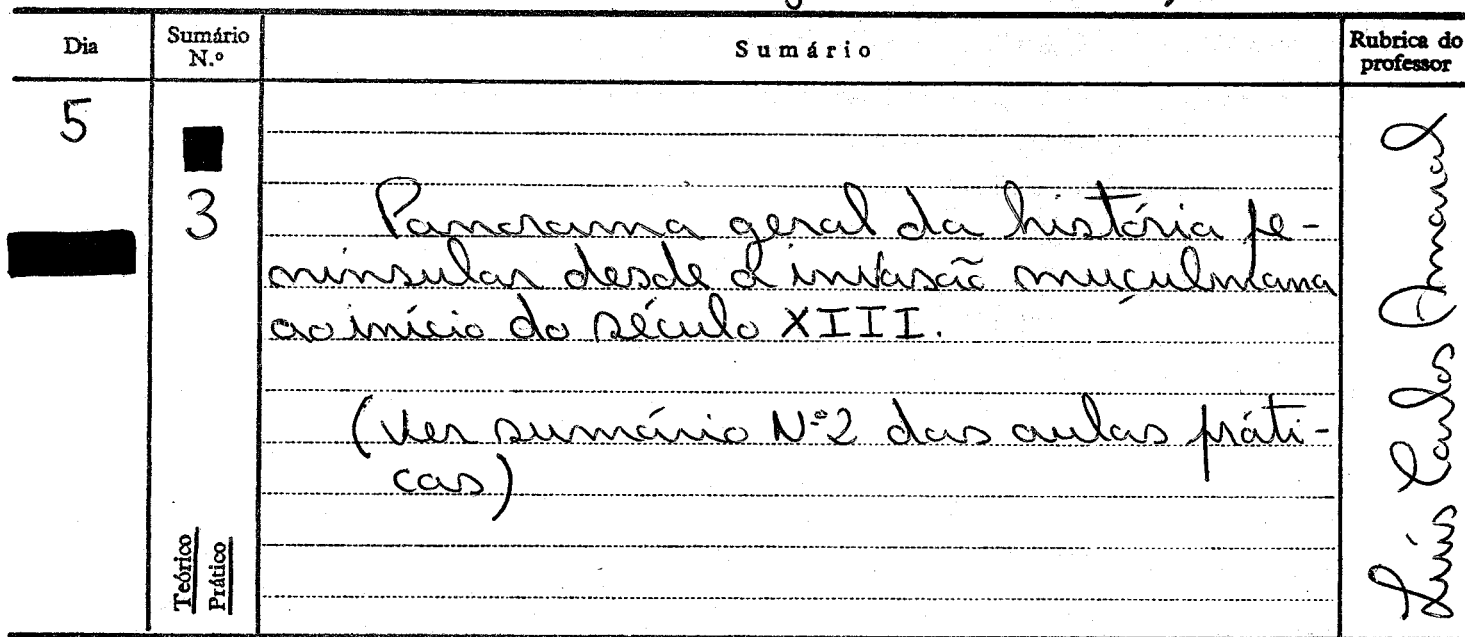 Dia
Sumário N.º
Sumário
Rubrica do professor
5
3
Panorama geral da história pe-
ninsular desde a invasão muçulmana
ao início do século XIII.
(Ver sumário Nº2 das aulas práti-
cas)
Teórico
Prático
Luís Carlos Amaral